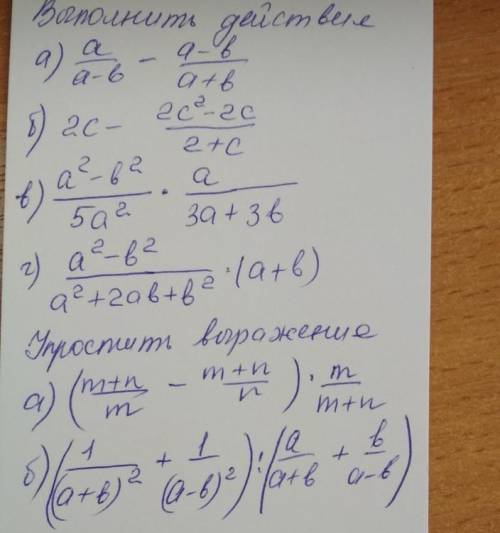 Выполнить действия
а) a/(a-в) - (a-в)/(a+в)
б) 2c - (2c²-2c)/(2+c)
в) (a²-в²)/(5a²) · a/(3a+3в)
г) (a²-в²)/(a²+2aв+в²) · (a+в)
Упростить выражение
а) ((m+n)/m - (m+n)/n) · m/(m+n)
б) (1/(a+в)² + 1/(a-в)²) : (a/(a+в) + в/(a-в))